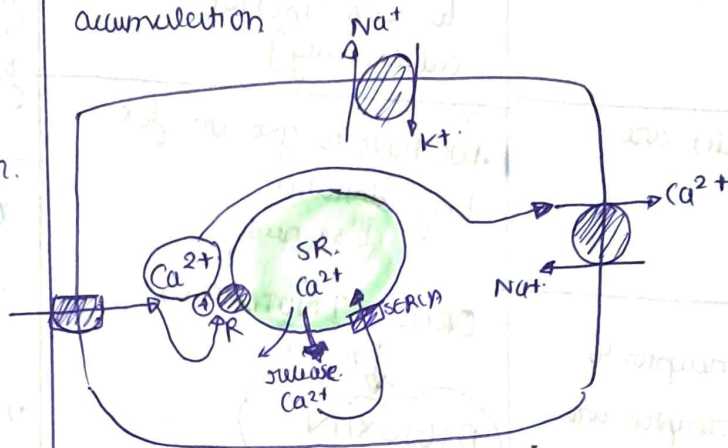 accumulation
Na+
K+.
Ca2+
Ca2+
SR.
Ca2+
Na+.
+
R
SERCA
release.
Ca2+